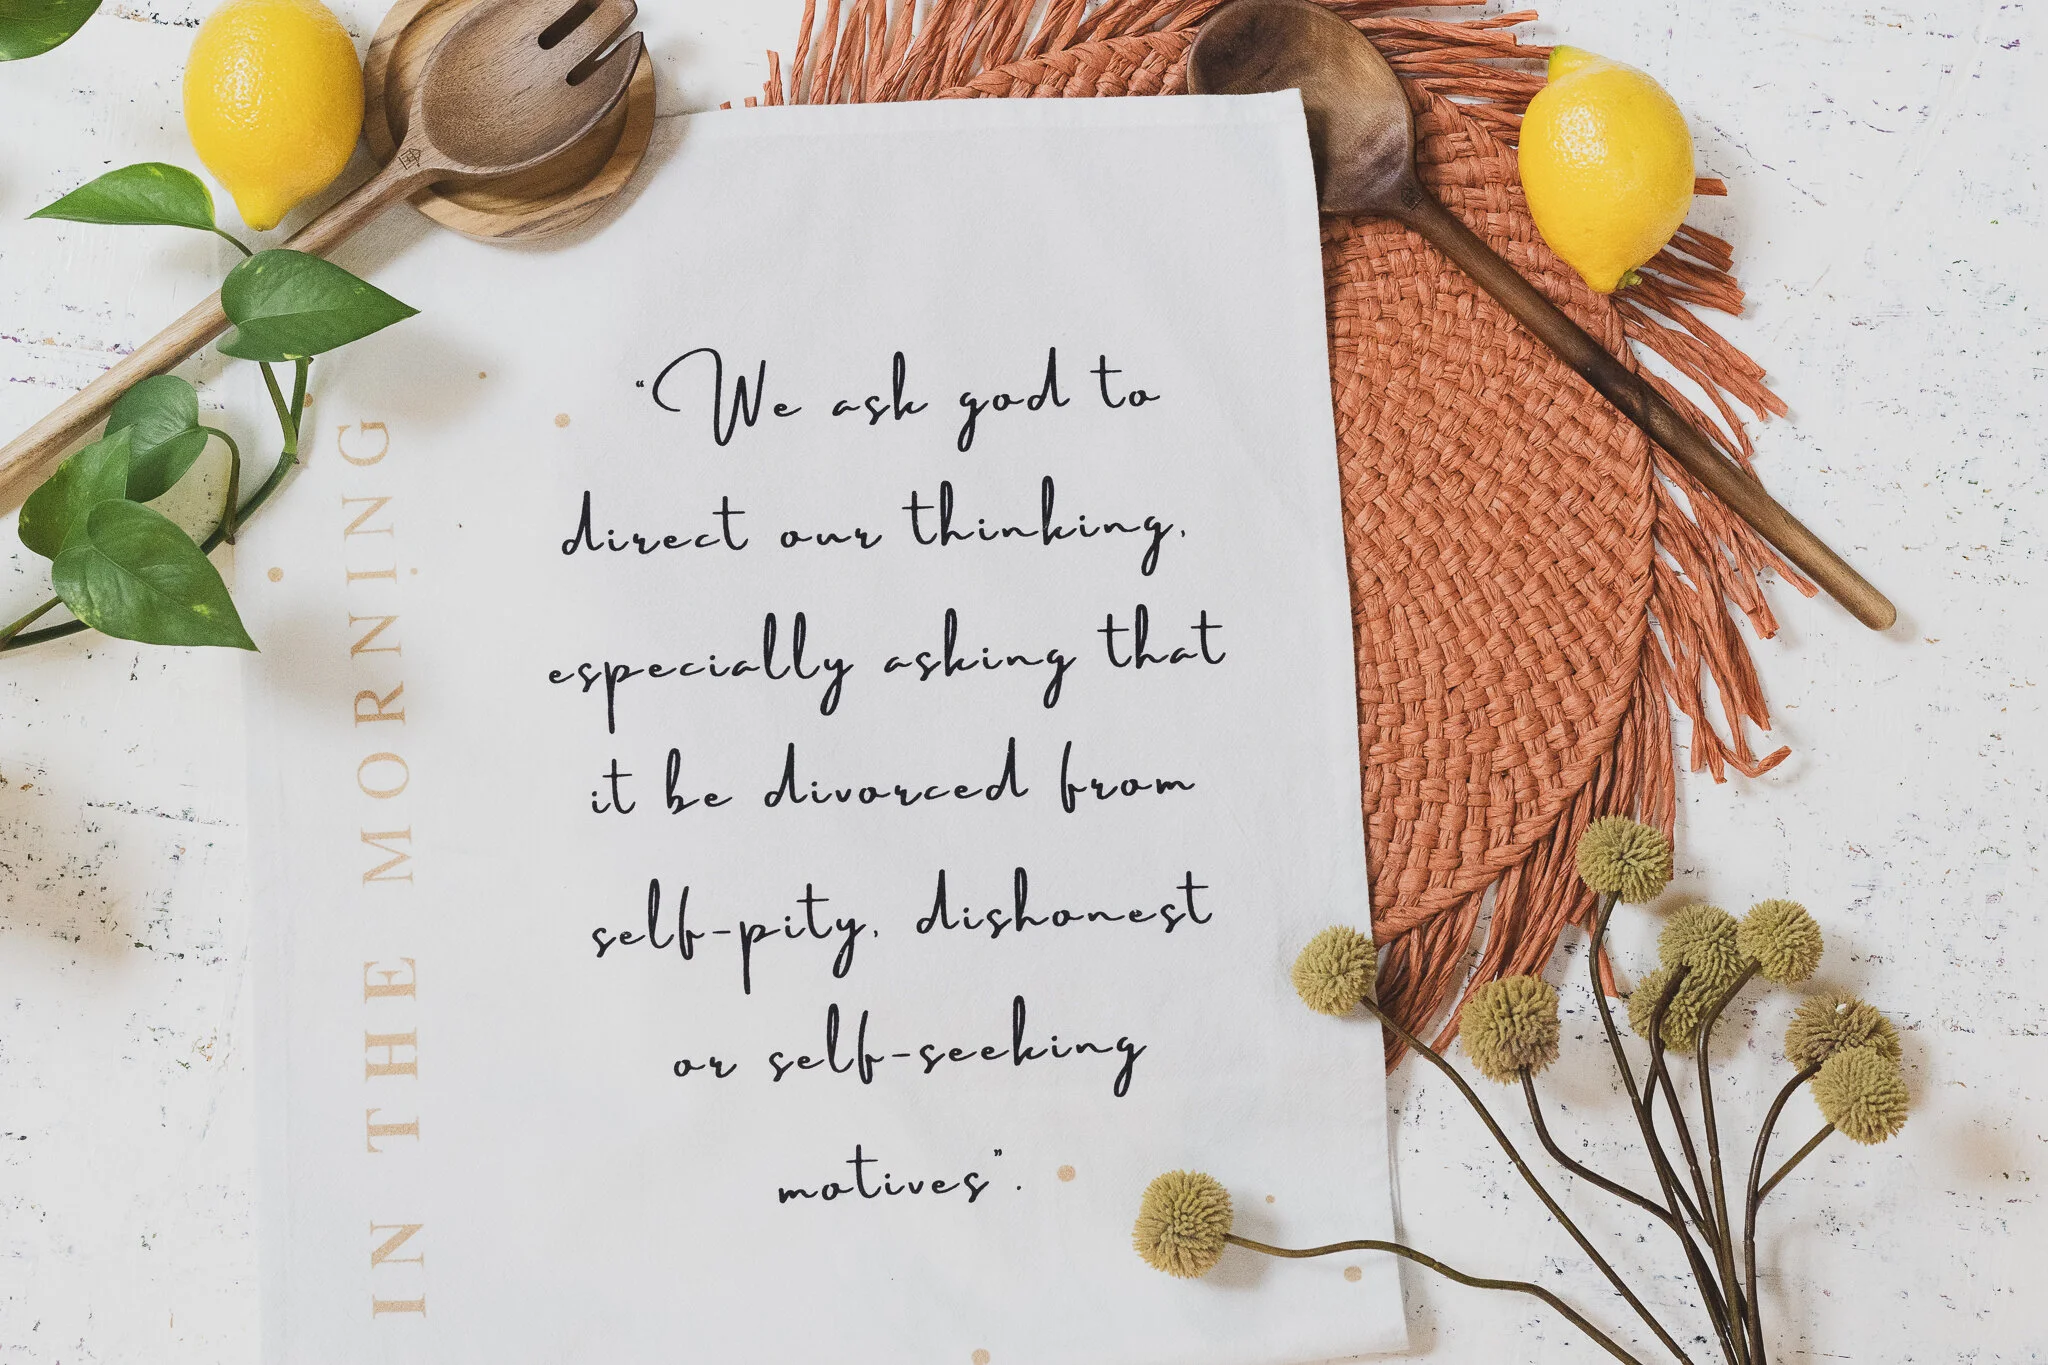 IN THE MORNING
“We ask god to
direct our thinking,
especially asking that
it be divorced from
self-pity, dishonest
or self-seeking
motives”.